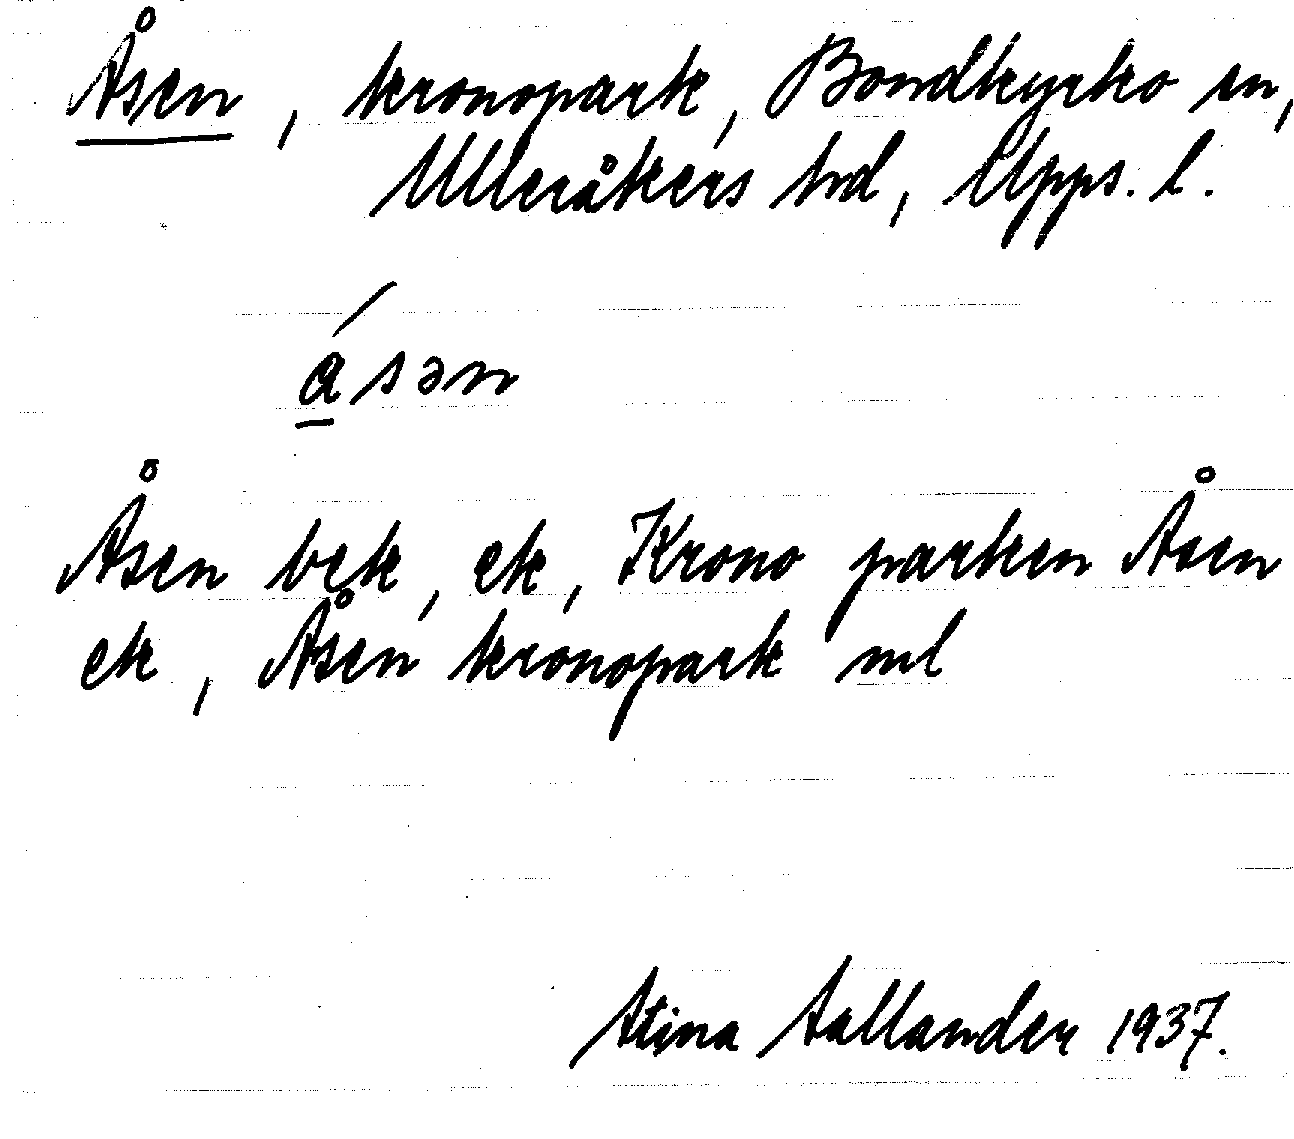 Åsen, kronopark, Bondkyrko sn,
Ulleråkers hd, Upps. l.
á̱sən
Åsen bek, ek, Krono parken Åsen
ek, Åsen kronopark ml
Stina Sallander 1937.